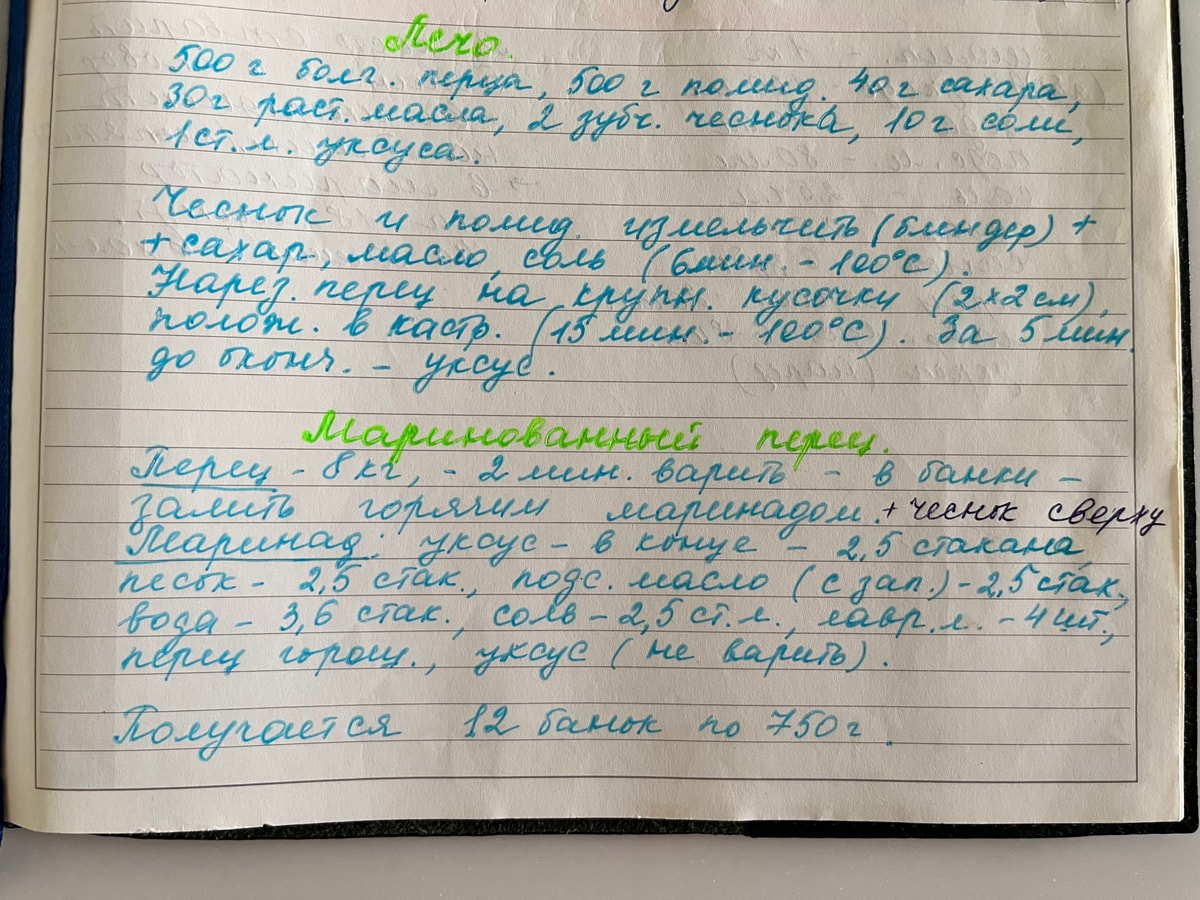 Лечо.
500 г болг. перца, 500 г помид. 40 г сахара,
30 г раст. масла, 2 зубч. чеснока, 10 г соли,
1 ст. л. уксуса.
Чеснок и помид. измельчить (блиндер) +
+ сахар, масло, соль (6 мин. - 100°С).
Нарез. перец на крупн. кусочки (2х2 см),
полож. в кастр. (15 мин. - 100°С). За 5 мин.
до оконч. - уксус.
Маринованный перец.
Перец - 8 кг, - 2 мин. варить - в банки -
залить горячим маринадом. + чеснок сверху
Маринад: уксус - в конце - 2,5 стакана,
песок - 2,5 стак., подс. масло (с зап.) - 2,5 стак.,
вода - 3,6 стак., соль - 2,5 ст. л., лавр. л. - 4 шт.,
перец горош., уксус (не варить).
Получается 12 банок по 750 г.